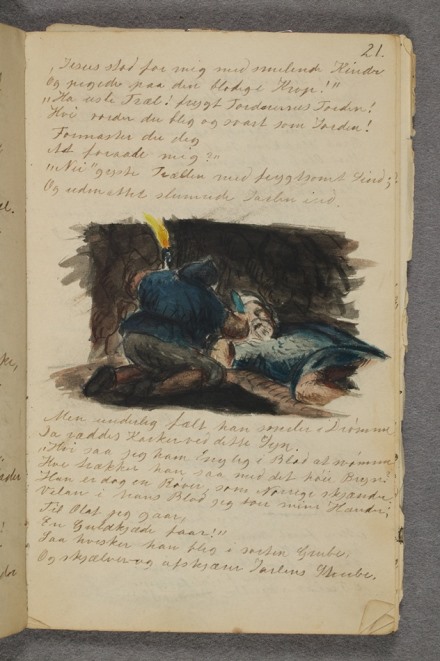 21.
"Jesus stod for mig med smilende Kinder
Og pegede paa din blodige Krop!"
"Ha usle Træl! frygt Tordnernes Torden!
Hvi vorder du bleg og svart som Jorden!
Formaster du dig
At forraade mig?"
"Nei" gjenste Trællen med frygtsomt Sind;
Og udmattet slumrede Jarlen ind.
Men underlig fælt han smiler i Drømme
Da ræddes Karker ved dette Syn.
"Hvi saa jeg ham i Blod at svømme
Hvi trækker han saa med det høie Bryn?
Han er dog en Røver, som Norrige skjænder
Velan i hans Blod jeg toer mine Hænder;
Til Olaf jeg gaar,
En Guldkjæde faar!"
Saa hvisker han bleg i sorten Grube,
Og skjælver og afskjærer Jarlens Strube.